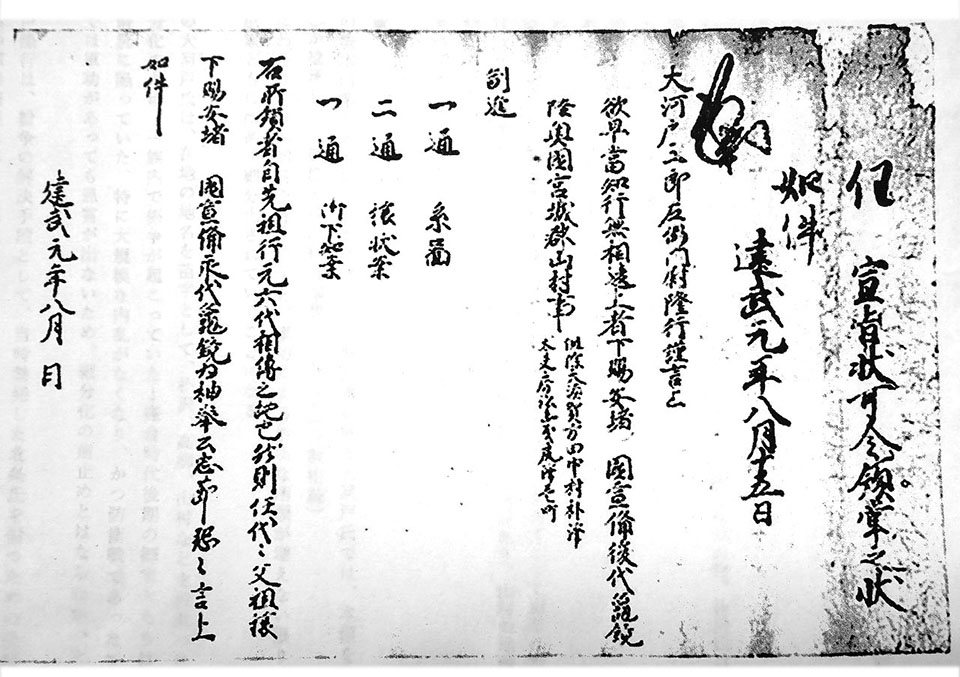 任 宣旨状可令領掌之状
如件
建武元年八月十五日
大河戸三郎左衛門尉隆行謹言上
欲早当知行無相違上者下賜安堵 国宣備後代亀鏡
陸奥国宮城郡山村事
副進
一通 系図
二通 譲状案
一通 御下知案
右所領者自先祖行元六代相傳之地也然則任代ゝ父祖譲
下賜安堵 国宣備永代亀鏡為抽奉公忠節恐ゝ言上
如件
建武元年八月 日